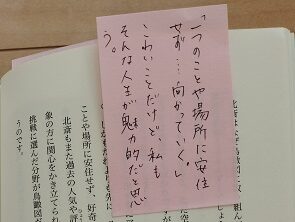 「一つのことや場所に安住
せず……向かっていく。」
こわいことだけど、私も
そんな人生が魅力的だと思
う。
北斎だ
ことや場所に安住せず、好奇
北斎もまた過去の人気や評
象の方に関心をかき立てられ
挑戦に選んだ分野が鳥瞰図
うのです。